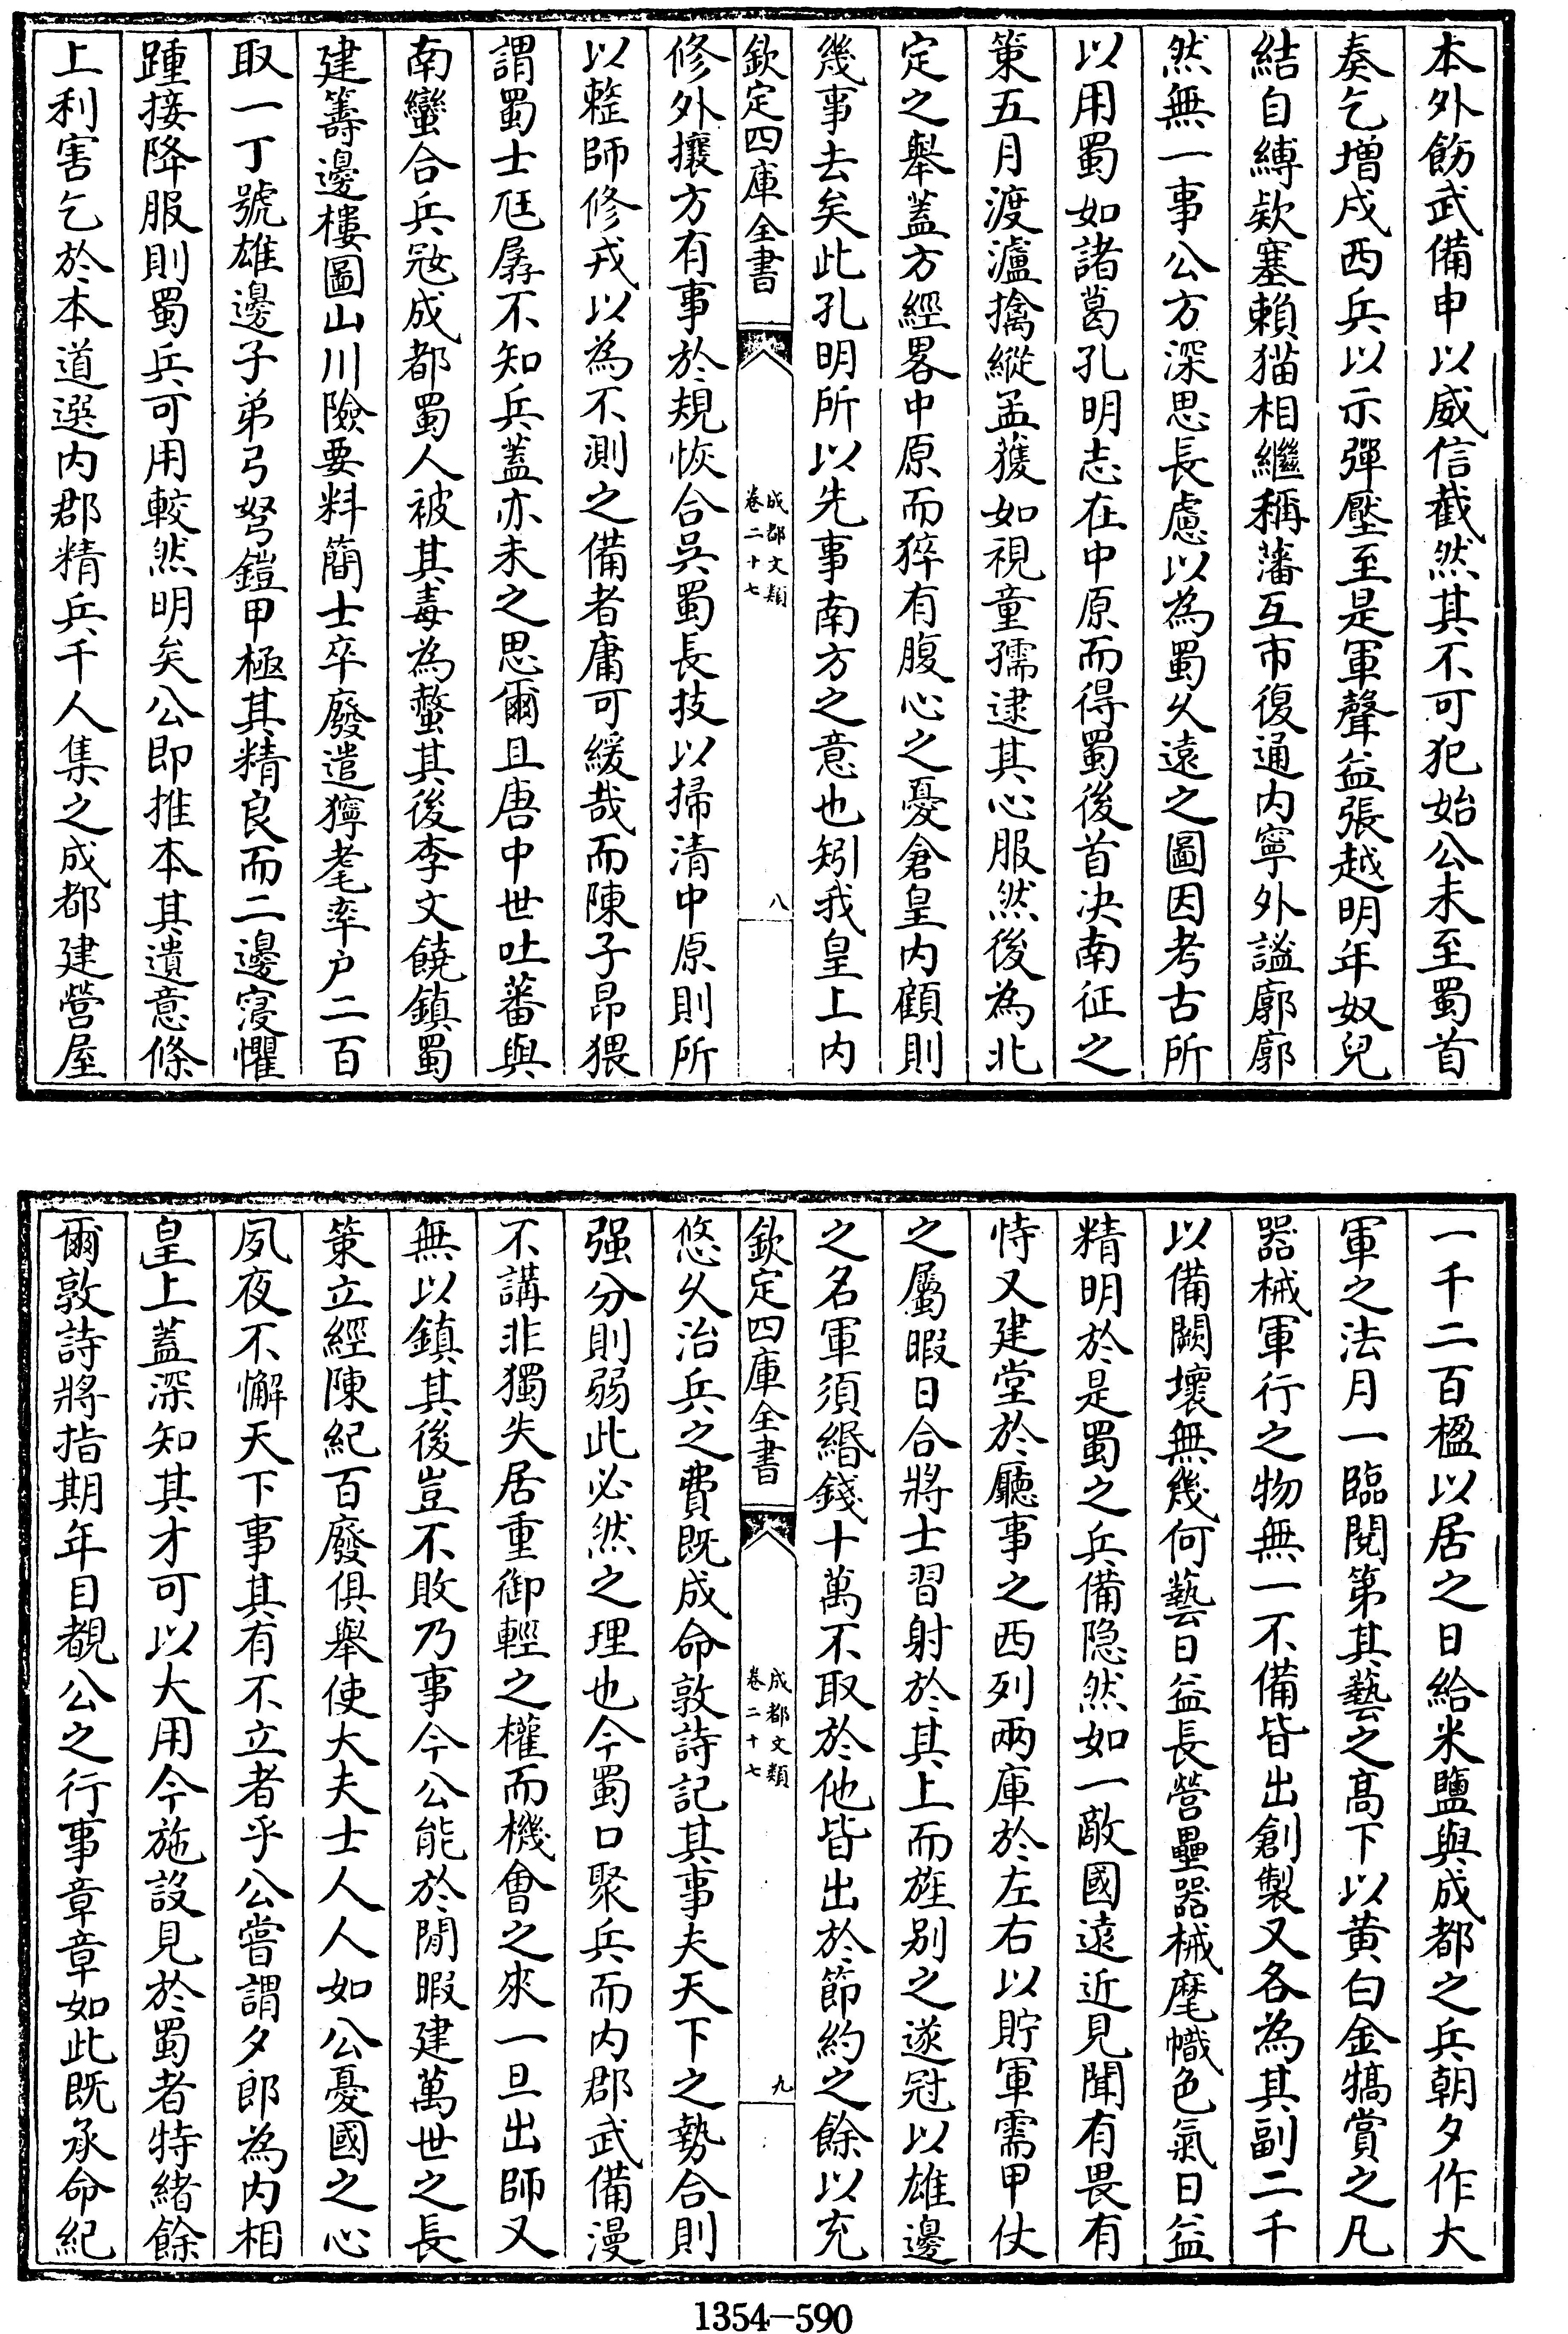 本外飭武備申以威信截然其不可犯始公未至蜀首
奏乞增戍西兵以示彈壓至是軍聲益張越明年奴兒
結自縛欵塞賴猫相繼稱藩互市復通内寧外謐廓廓
然無一事公方深思長慮以為蜀乆遠之圖因考古所
以用蜀如諸葛孔明志在中原而得蜀後首决南征之
策五月渡瀘擒縱孟獲如視童孺逮其心服然後為北
定之舉蓋方經畧中原而猝有腹心之憂倉皇内顧則
幾事去矣此孔明所以先事南方之意也矧我皇上内
欽定四庫全書
成都文類
卷二十七
八
修外攘方有事於規恢合吳蜀長技以掃清中原則所
以整師修戎以為不測之備者庸可緩哉而陳子昂猥
謂蜀士尫孱不知兵蓋亦未之思爾且唐中世吐蕃與
南蠻合兵冦成都蜀人被其毒為螫其後李文饒鎮蜀
建籌邊樓圖山川險要料簡士卒廢遣獰耄率户二百
取一丁號雄邊子弟弓弩鎧甲極其精良而二邊寖懼
踵接降服則蜀兵可用較然明矣公即推本其遺意條
上利害乞於本道選内郡精兵千人集之成都建營屋
一千二百楹以居之日給米鹽與成都之兵朝夕作大
軍之法月一臨閱第其藝之髙下以黄白金犒賞之凡
器械軍行之物無一不備皆出創製又各為其副二千
以備闕壞無幾何藝日益長營壘器械麾幟色氣日益
精明於是蜀之兵備隐然如一敵國逺近見聞有畏有
恃又建堂於廳事之西列兩庫於左右以貯軍需甲仗
之屬暇日合將士習射於其上而旌别之遂冠以雄邊
之名軍須緡錢十萬不取於他皆出於節約之餘以充
欽定四庫全書
成都文類
卷二十七
九
悠乆治兵之費既成命敦詩記其事夫天下之勢合則
强分則弱此必然之理也今蜀口聚兵而内郡武備漫
不講非獨失居重御輕之權而機㑹之來一旦出師又
無以鎮其後豈不敗乃事今公能於閒暇建萬世之長
策立經陳紀百廢俱舉使大夫士人人如公憂國之心
夙夜不懈天下事其有不立者乎公嘗謂夕郎為内相
皇上蓋深知其才可以大用今施設見於蜀者特緒餘
爾敦詩將指期年目覩公之行事章章如此既承命紀
1354-590